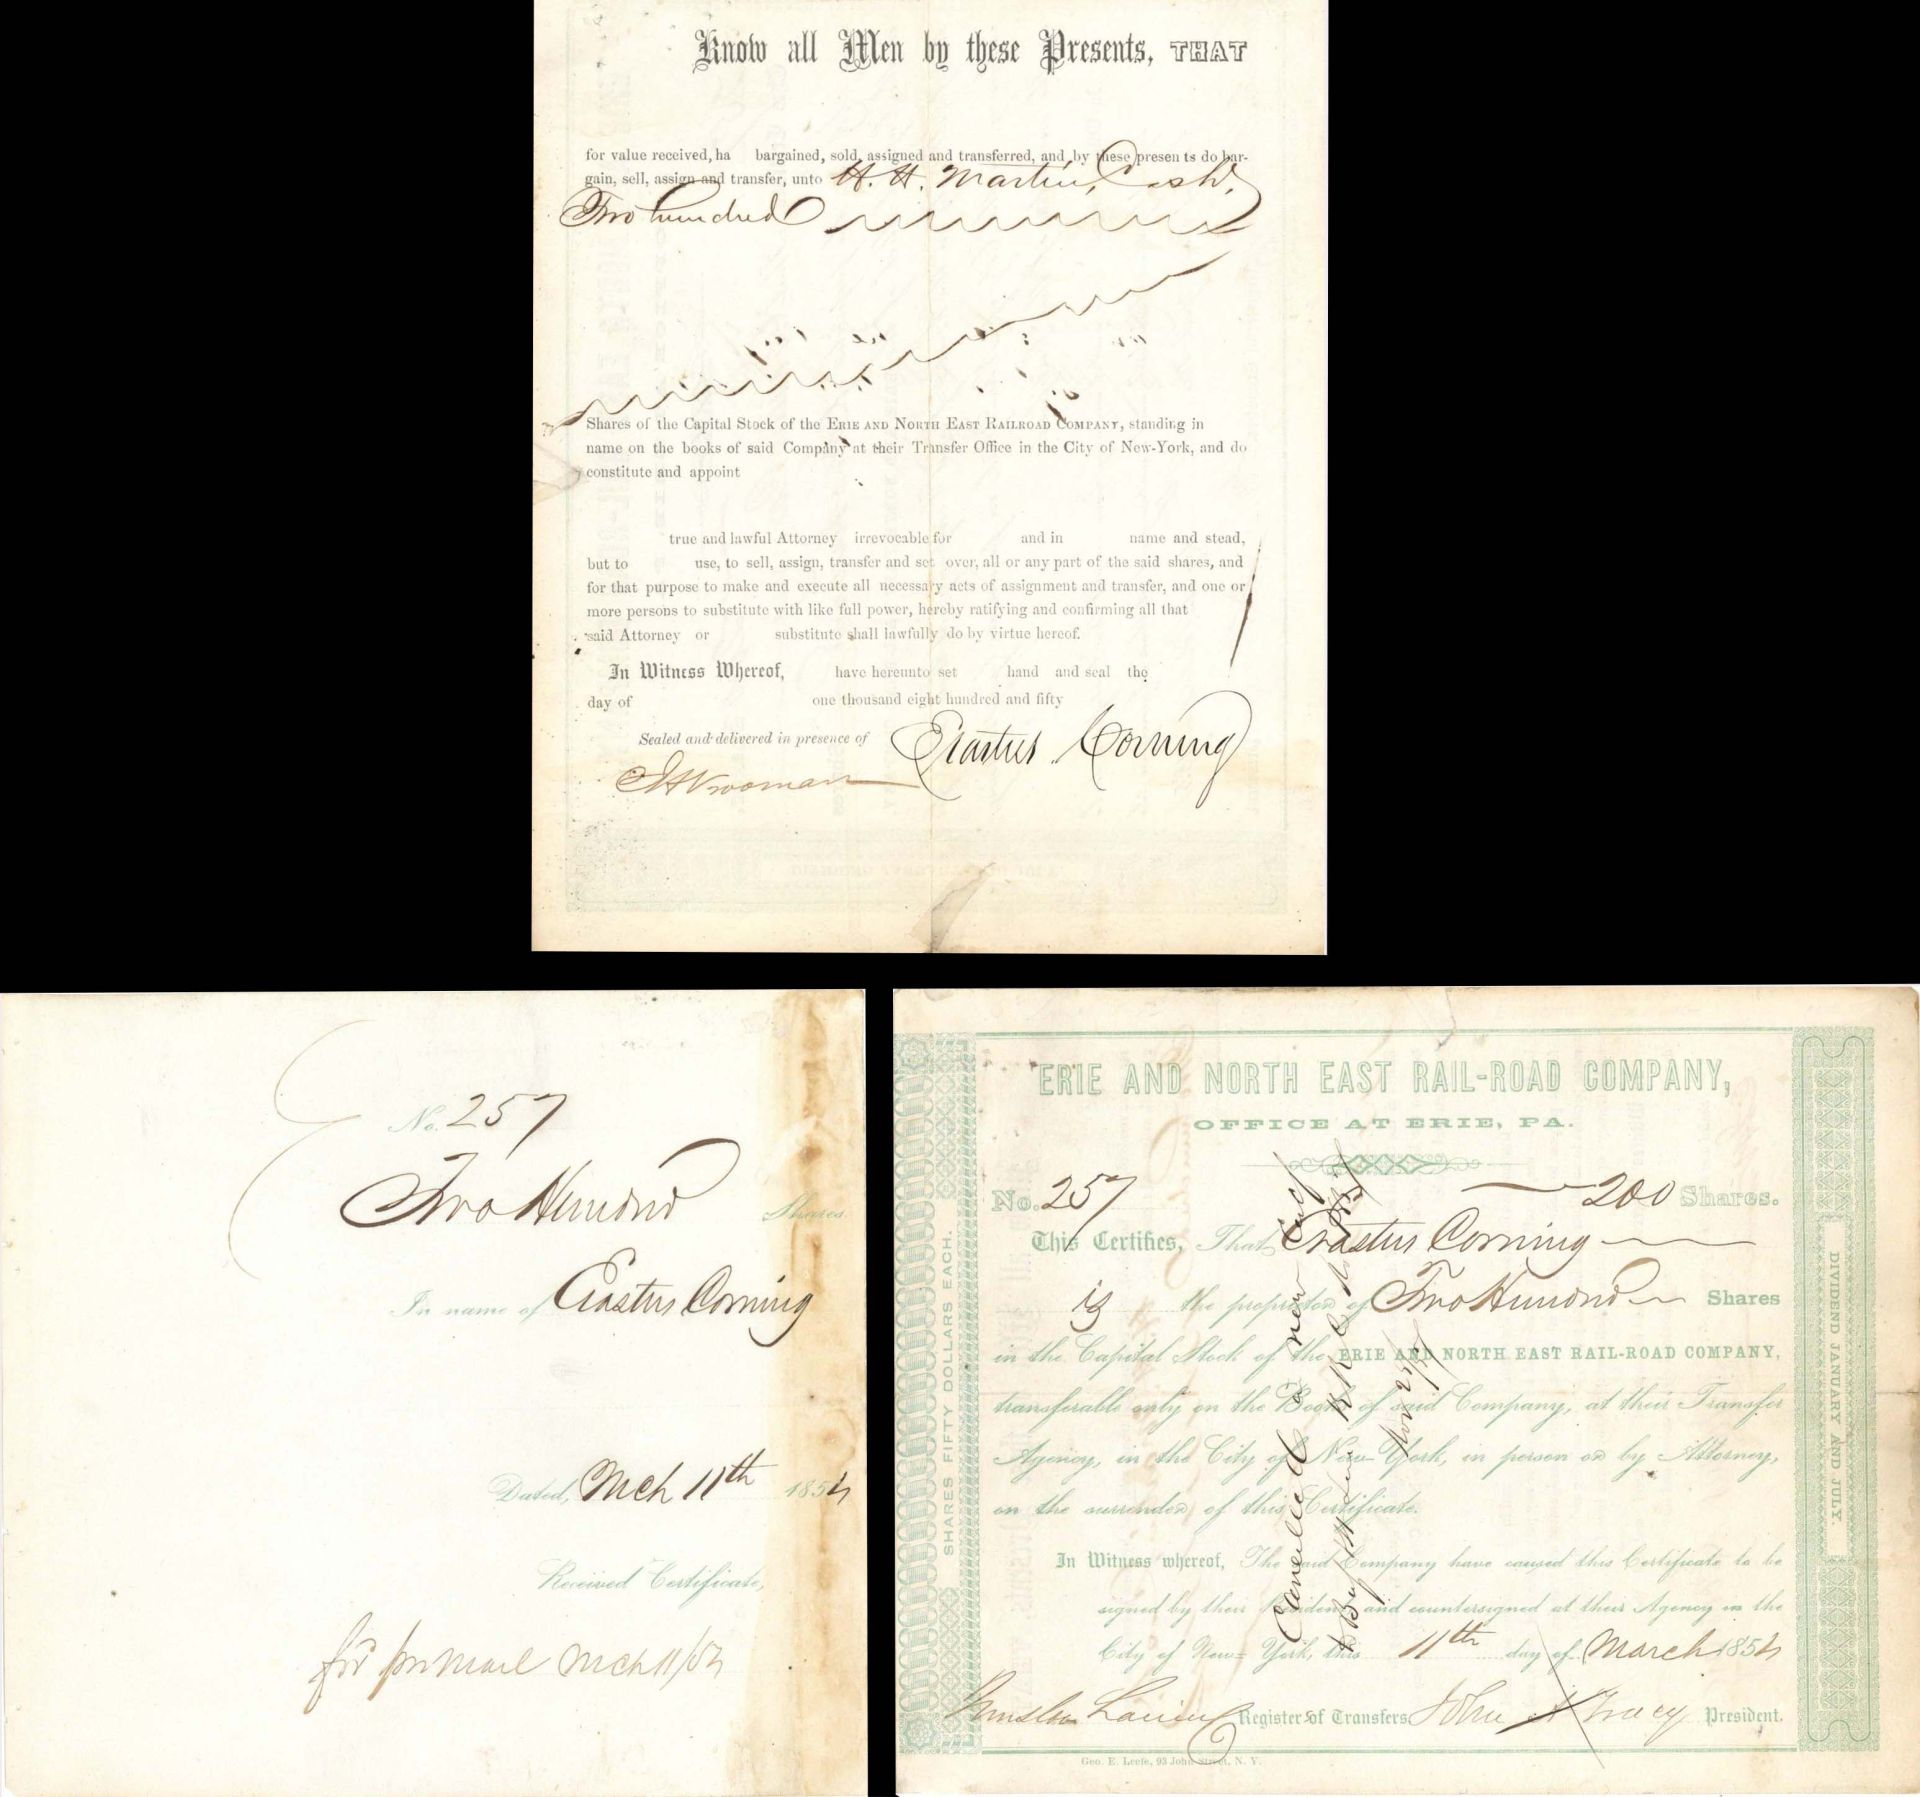 Know all Men by these Presents, THAT
for value received, ha bargained, sold, assigned and transferred, and by these presen ts do bar-
gain, sell, assign and transfer, unto H. H. Martin, Cash.
Two hundred
Shares of the Capital Stock of the ERIE AND NORTH EAST RAILROAD COMPANY, standing in
name on the books of said Company at their Transfer Office in the City of New-York, and do
constitute and appoint
true and lawful Attorney irrevocable for and in name and stead,
but to use, to sell, assign, transfer and set over, all or any part of the said shares, and
for that purpose to make and execute all necessary acts of assignment and transfer, and one or
more persons to substitute with like full power, hereby ratifying and confirming all that
said Attorney or substitute shall lawfully do by virtue hereof.
In Witness Whereof, have hereunto set hand and seal the
day of one thousand eight hundred and fifty
Sealed and delivered in presence of Erastus Corning
Vrooman
No. 257
Two Hundred Shares
In name of Erastus Corning
Dated, Mch 11th 1854
Received Certificate,
for pr mail Mch 11/54
ERIE AND NORTH EAST RAIL-ROAD COMPANY,
OFFICE AT ERIE, PA.
No. 257 200 Shares.
This Certifies, That Erastus Corning
is the proprietor of Two Hundred Shares
in the Capital Stock of the ERIE AND NORTH EAST RAIL-ROAD COMPANY,
transferable only on the Books of said Company, at their Transfer
Agency, in the City of New-York, in person or by Attorney,
on the surrender of this Certificate.
In Witness whereof, The said Company have caused this Certificate to be
signed by their President and countersigned at their Agency in the
City of New-York, this 11th day of March 1854
Winslow Lanier Register of Transfers John A Tracy President.
Geo. E. Leefe, 93 John Street, N. Y.
SHARES FIFTY DOLLARS EACH.
DIVIDEND JANUARY AND JULY.
Cancelled a new